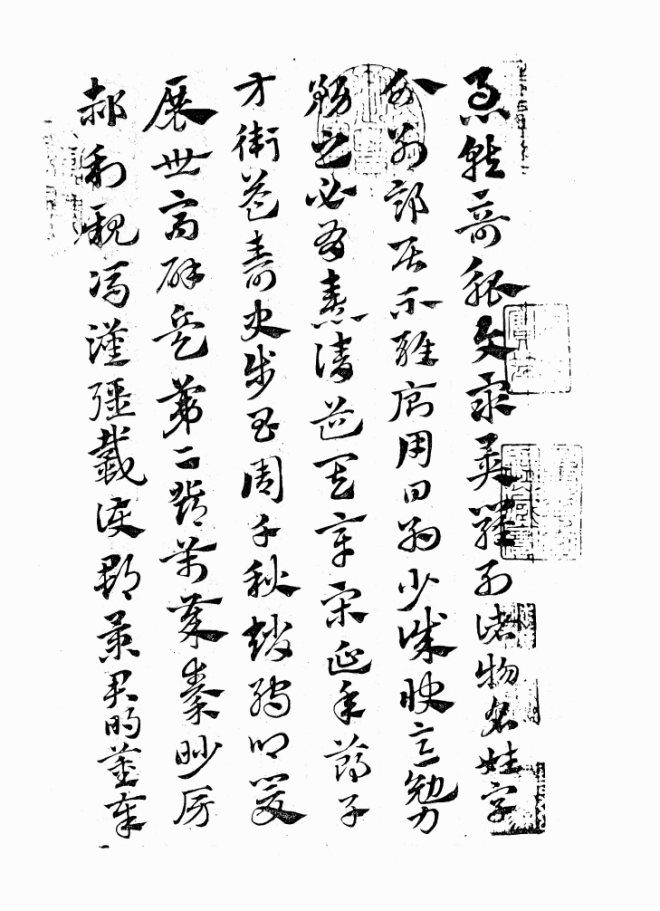 急就奇觚與衆異羅列諸物名姓字
分別部居不雜廁用日約少誠快意勉力
務之必有憙請道其章宋延年鄭子
方衛益壽史步昌周千秋趙孺卿爰
展世高辟兵第二鄧萬歲秦眇房
郝利親馮漢彊戴護郡景君明董奉